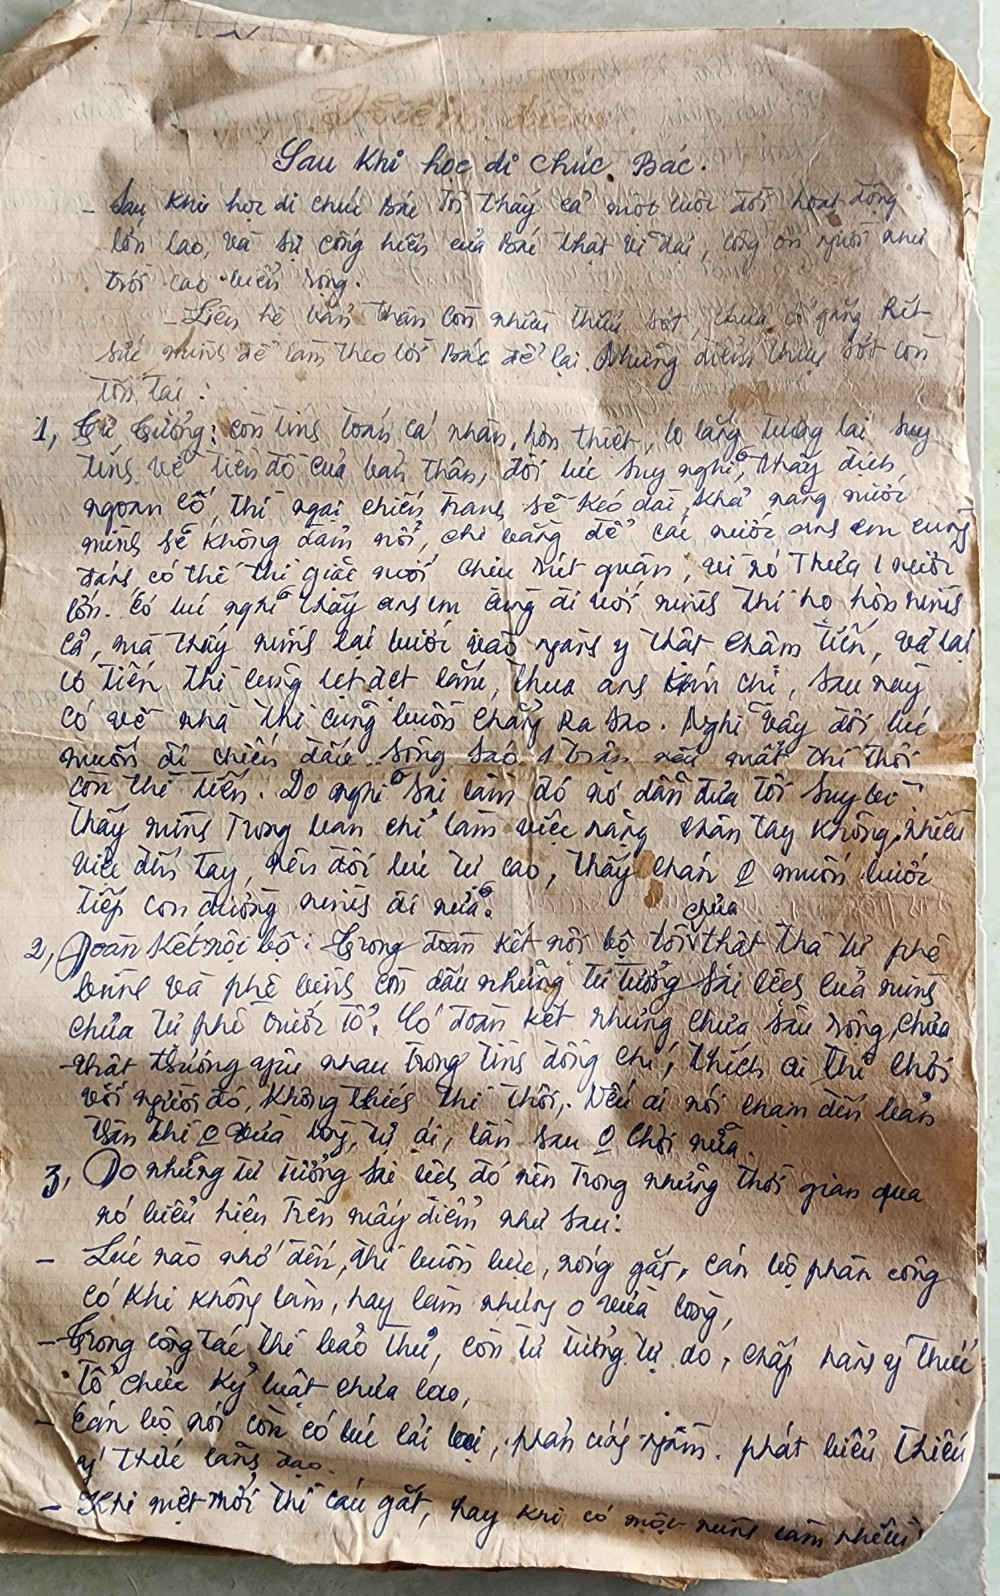 Kiểm điểm
Sau Khi học di chúc Bác.
- Sau khi học di chúc Bác Tôi thấy cả một cuộc đời hoạt động
lớn lao, và sự cống hiến của Bác thật vĩ đại, công ơn người như
trời cao biển rộng.
- Liên hệ bản thân còn nhiều thiếu sót, chưa cố gắng hết
sức mình để làm theo lời Bác để lại. Những điểm thiếu sót còn
tồn tại:
1, Tư tưởng: còn tính toán cá nhân, hơn thiệt, lo lắng tương lai suy
tính về tiền đồ của bản thân, đôi lúc suy nghĩ, thấy địch
ngoan cố, thì ngại chiến tranh sẽ kéo dài, khả năng nước
mình sẽ không đảm nổi, chi bằng để các nước anh em cùng
đánh có thế thì giặc mới chịu rút quân, vì nó thua 1 nước
lớn. Có lúc nghĩ thấy anh em cùng đi với mình thì họ hơn mình
cả, mà thấy mình lại bước vào ngành y thật chậm tiến, và lại
có tiến thì cũng lẹt đẹt lắm, thua anh kém chị, sau này
có về nhà thì cũng buồn chẳng ra sao. Nghĩ vậy đôi lúc
muốn đi chiến đấu sống sao 1 trận nếu mất thì thôi
còn thì tiến. Do nghĩ sai lầm đó nó dẫn đưa tôi suy bì
thấy mình trong ban chỉ làm việc nặng chân tay không, nhiều
việc đến tay, nên đôi lúc tự cao, thấy chán 0 muốn bước
tiếp con đường mình đi nữa.
2, Đoàn kết nội bộ: Trong đoàn kết nội bộ tôi chưa thật thà tự phê
bình và phê bình còn dấu những tư tưởng sai lệch của mình
chưa tự phê trước tổ. Có đoàn kết nhưng chưa sâu rộng, chưa
thật thương yêu nhau trong tình đồng chí, thích ai thì chơi
với người đó, không thích thì thôi. Nếu ai nói chạm đến bản
thân thì 0 vừa lòng, tự ái, lần sau 0 chơi nữa.
3, Do những tư tưởng sai lệch đó nên trong những thời gian qua
nó biểu hiện trên mấy điểm như sau:
- Lúc nào nhớ đến, thì buồn bực, nóng gắt, cán bộ phân công
có khi không làm, hay làm nhưng 0 vừa lòng,
- Trong công tác thì bảo thủ, còn tư tưởng tự do, chấp hành ý thức
tổ chức kỷ luật chưa cao,
- Cán bộ nói còn có lúc cải lại, phản ứng ngầm. phát biểu thiếu
ý thức lãnh đạo.
- Khi mệt mỏi thì cáu gắt, hay khi có một mình làm nhiều